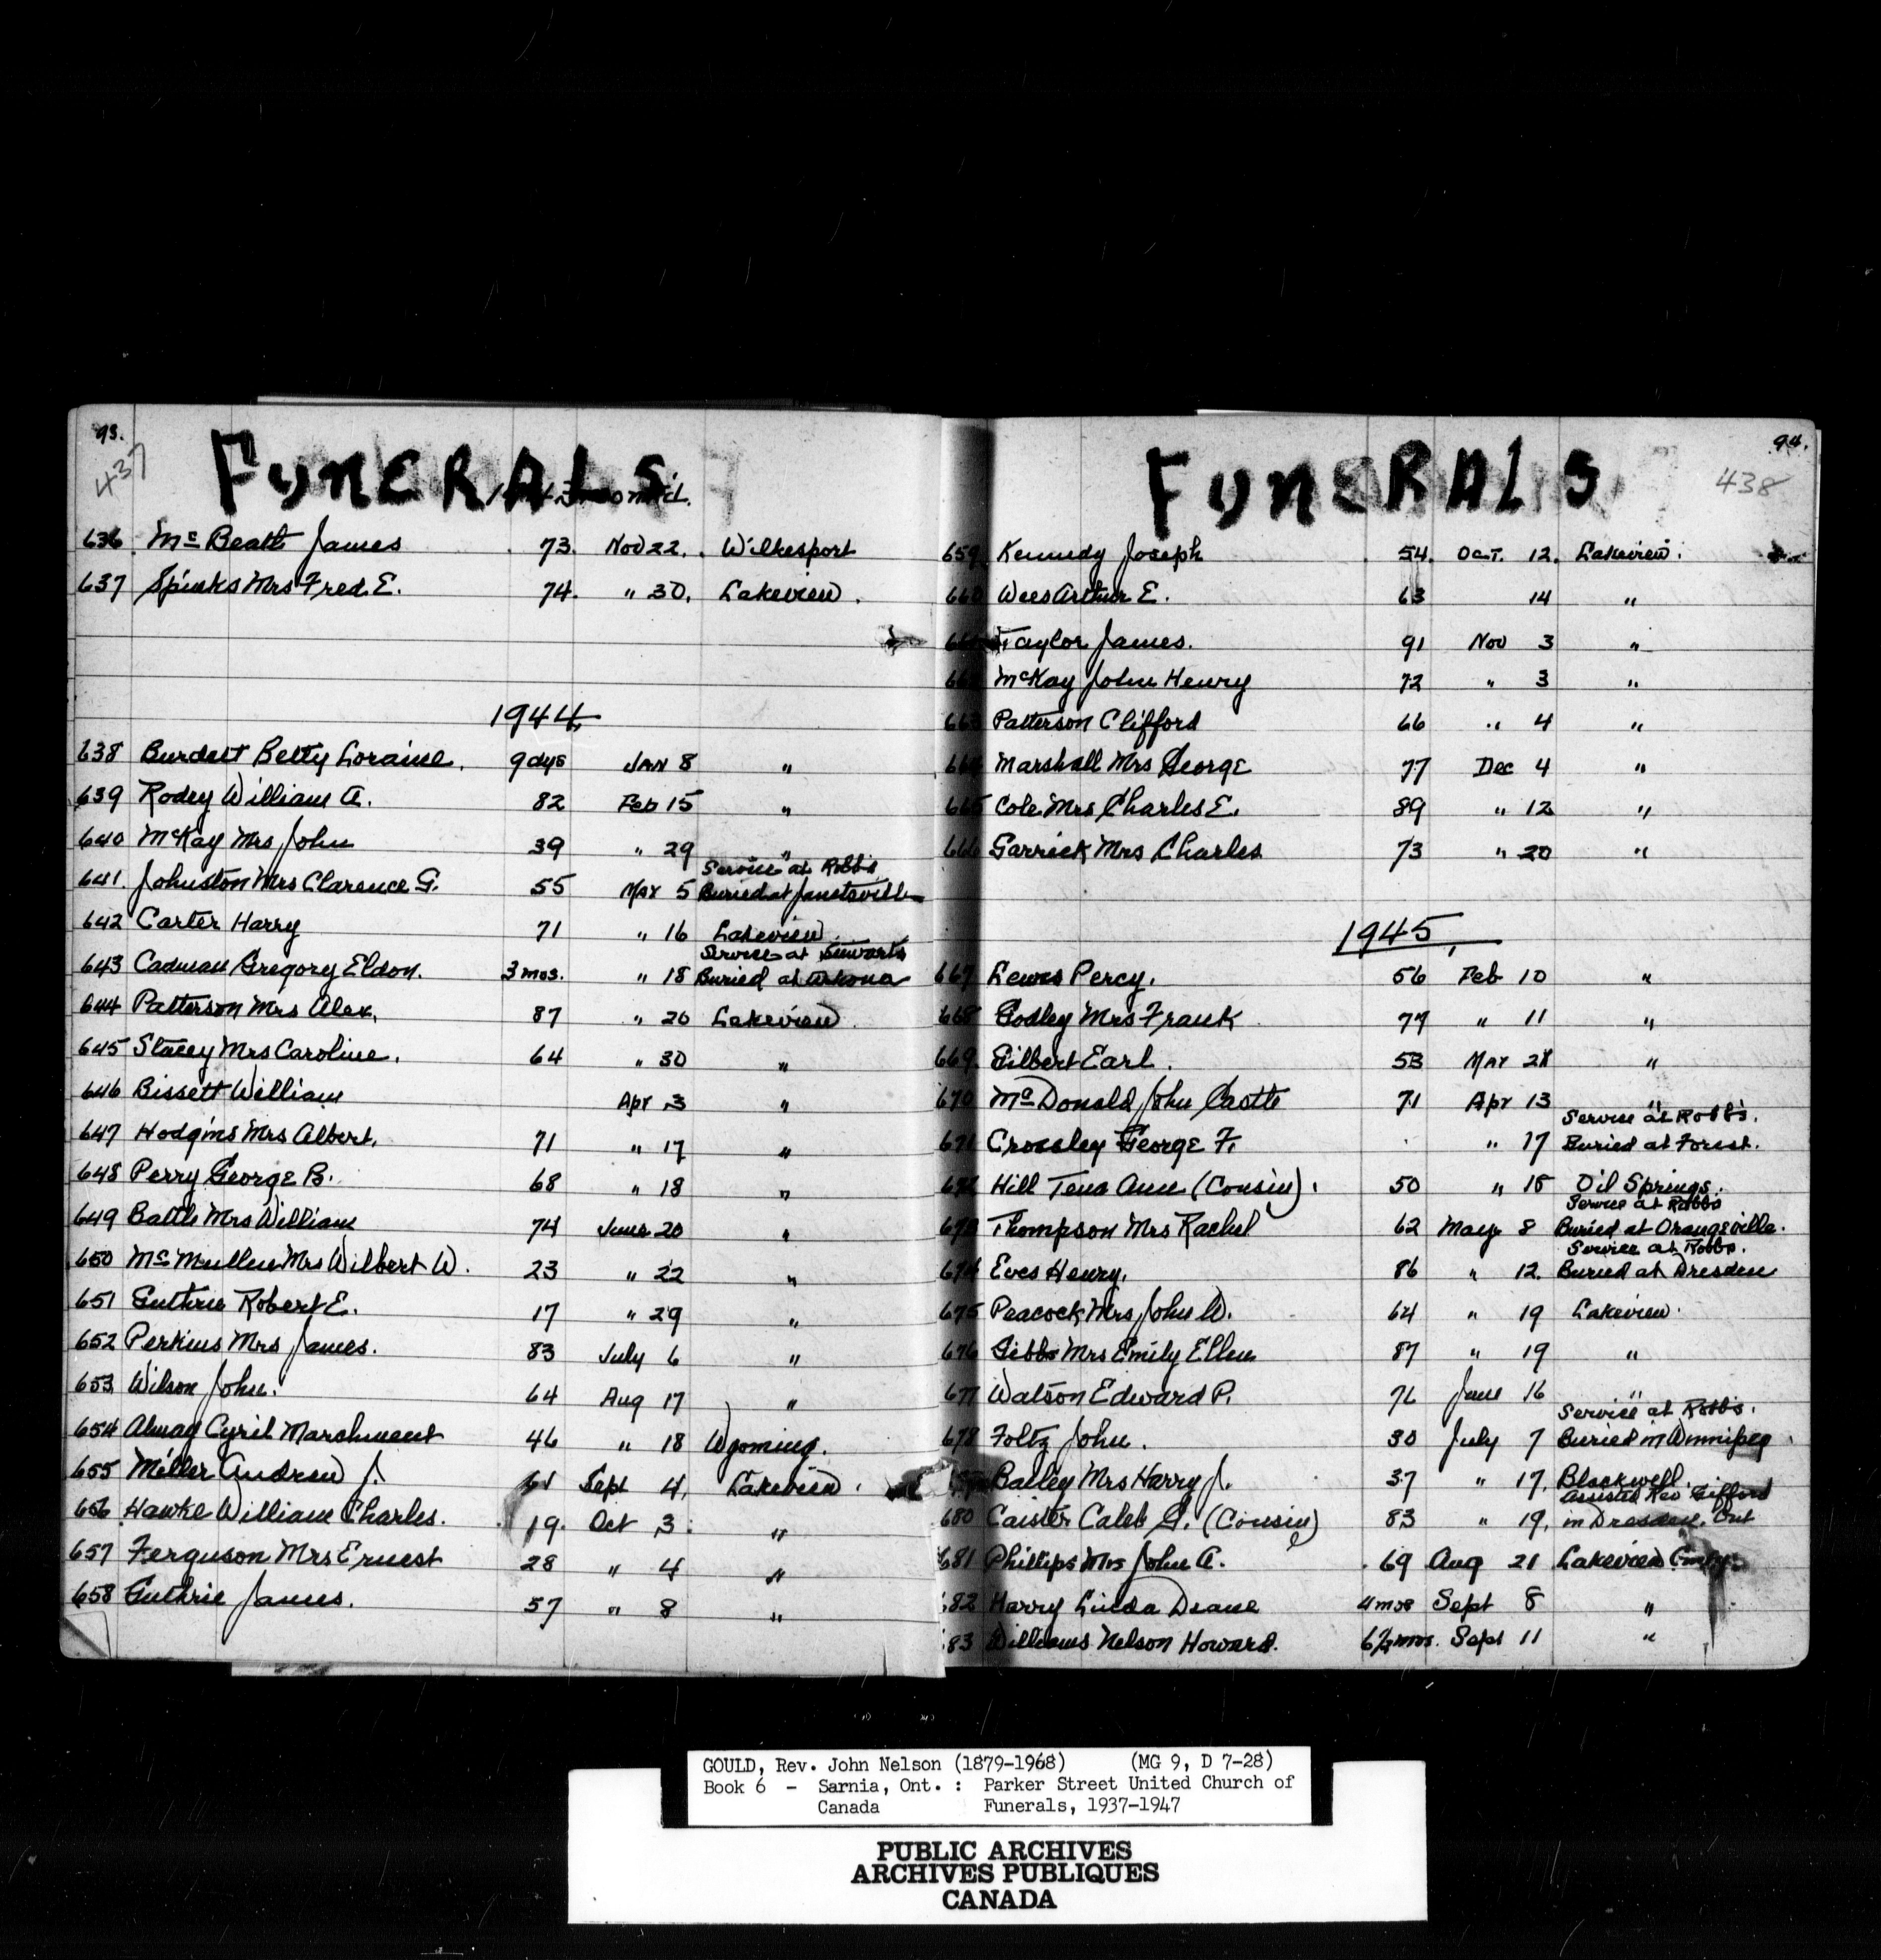 93.
437
FUNERALS.
1943 cont'd.
636. Mc Beath James 73. Nov 22. Wilkesport
637 Spinks Mrs Fred E. 74. " 30. Lakeview.
1944
638 Burdett Betty Loraine. 9 dys Jan 8 "
639 Rodey William A. 82 Feb 15 "
640 McKay Mrs John 39 " 29 "
Service at Robb's
641. Johnston Mrs Clarence G. 55 Mar 5 Buried at Janetsville
642 Carter Harry 71 " 16 Lakeview
Service at Stewarts
643 Cadman Gregory Eldon. 3 mos. " 18 Buried at Arkona
644 Patterson Mrs Alex. 87 " 20 Lakeview.
645 Stacey Mrs Caroline. 64 " 30 "
646 Bissett William Apr 3 "
647 Hodgins Mrs Albert. 71 " 17 "
648 Perry George B. 68 " 18 "
649 Battle Mrs William 74 June 20 "
650 Mc Mullen Mrs Wilbert W. 23 " 22 "
651 Guthrie Robert E. 17 " 29 "
652 Perkins Mrs James. 83 July 6 "
653 Wilson John. 64 Aug 17 "
654 Almay Cyril Marchment 46 " 18 Wyoming.
655 Miller Andrew J. 61 Sept 4, Lakeview.
656 Hawke William Charles. 19. Oct 3. "
657 Ferguson Mrs Ernest 28 " 4 "
658 Guthrie James. 57 " 8 "
94.
438
FUNERALS.
659 Kennedy Joseph 54. Oct. 12. Lakeview.
660 Wees Arthur E. 63 14 "
661 Taylor James. 91 Nov 3 "
662 McKay John Henry 72 " 3 "
663 Patterson Clifford 66 " 4 "
664 Marshall Mrs George 77 Dec 4 "
665 Cole Mrs Charles E. 89 " 12 "
666 Garrick Mrs Charles 73 " 20 "
1945
667 Lewis Percy. 56 Feb 10 "
668 Godley Mrs Frank 77 " 11 "
669. Gilbert Earl. 53 Mar 28 "
670 Mc Donald John Castle 71 Apr 13 "
Service at Robb's.
671 Crossley George F. " 17 Buried at Forest.
672 Hill Tena Ann (Cousin). 50 " 18 Oil Springs.
Service at Robbs
673 Thompson Mrs Rachel 62 May 8 Buried at Orangeville.
Service at Robbs.
674 Eves Henry. 86 " 12. Buried at Dresden
675 Peacock Mrs John W. 64 " 19 Lakeview.
676 Gibbs Mrs Emily Ellen 87 " 19 "
677 Watson Edward P. 76 June 16 "
Service at Robbs.
678 Foltz John. 30 July 7 Buried in Winnipeg
Bailey Mrs Harry J. 37 " 17, Blackwell.
Assisted Rev Gifford
680 Caister Caleb G. (Cousin) 83 " 19, in Dresden. Ont
681 Phillips Mrs John A. 69 Aug 21 Lakeview Cmty.
682 Harry Linda Diane 4 mos Sept 8 "
83 Williams Nelson Howard. 6½ mos. Sept 11 "
GOULD, Rev. John Nelson (1879-1968) (MG 9, D 7-28)
Book 6 - Sarnia, Ont. : Parker Street United Church of
Canada Funerals, 1937-1947
PUBLIC ARCHIVES
ARCHIVES PUBLIQUES
CANADA